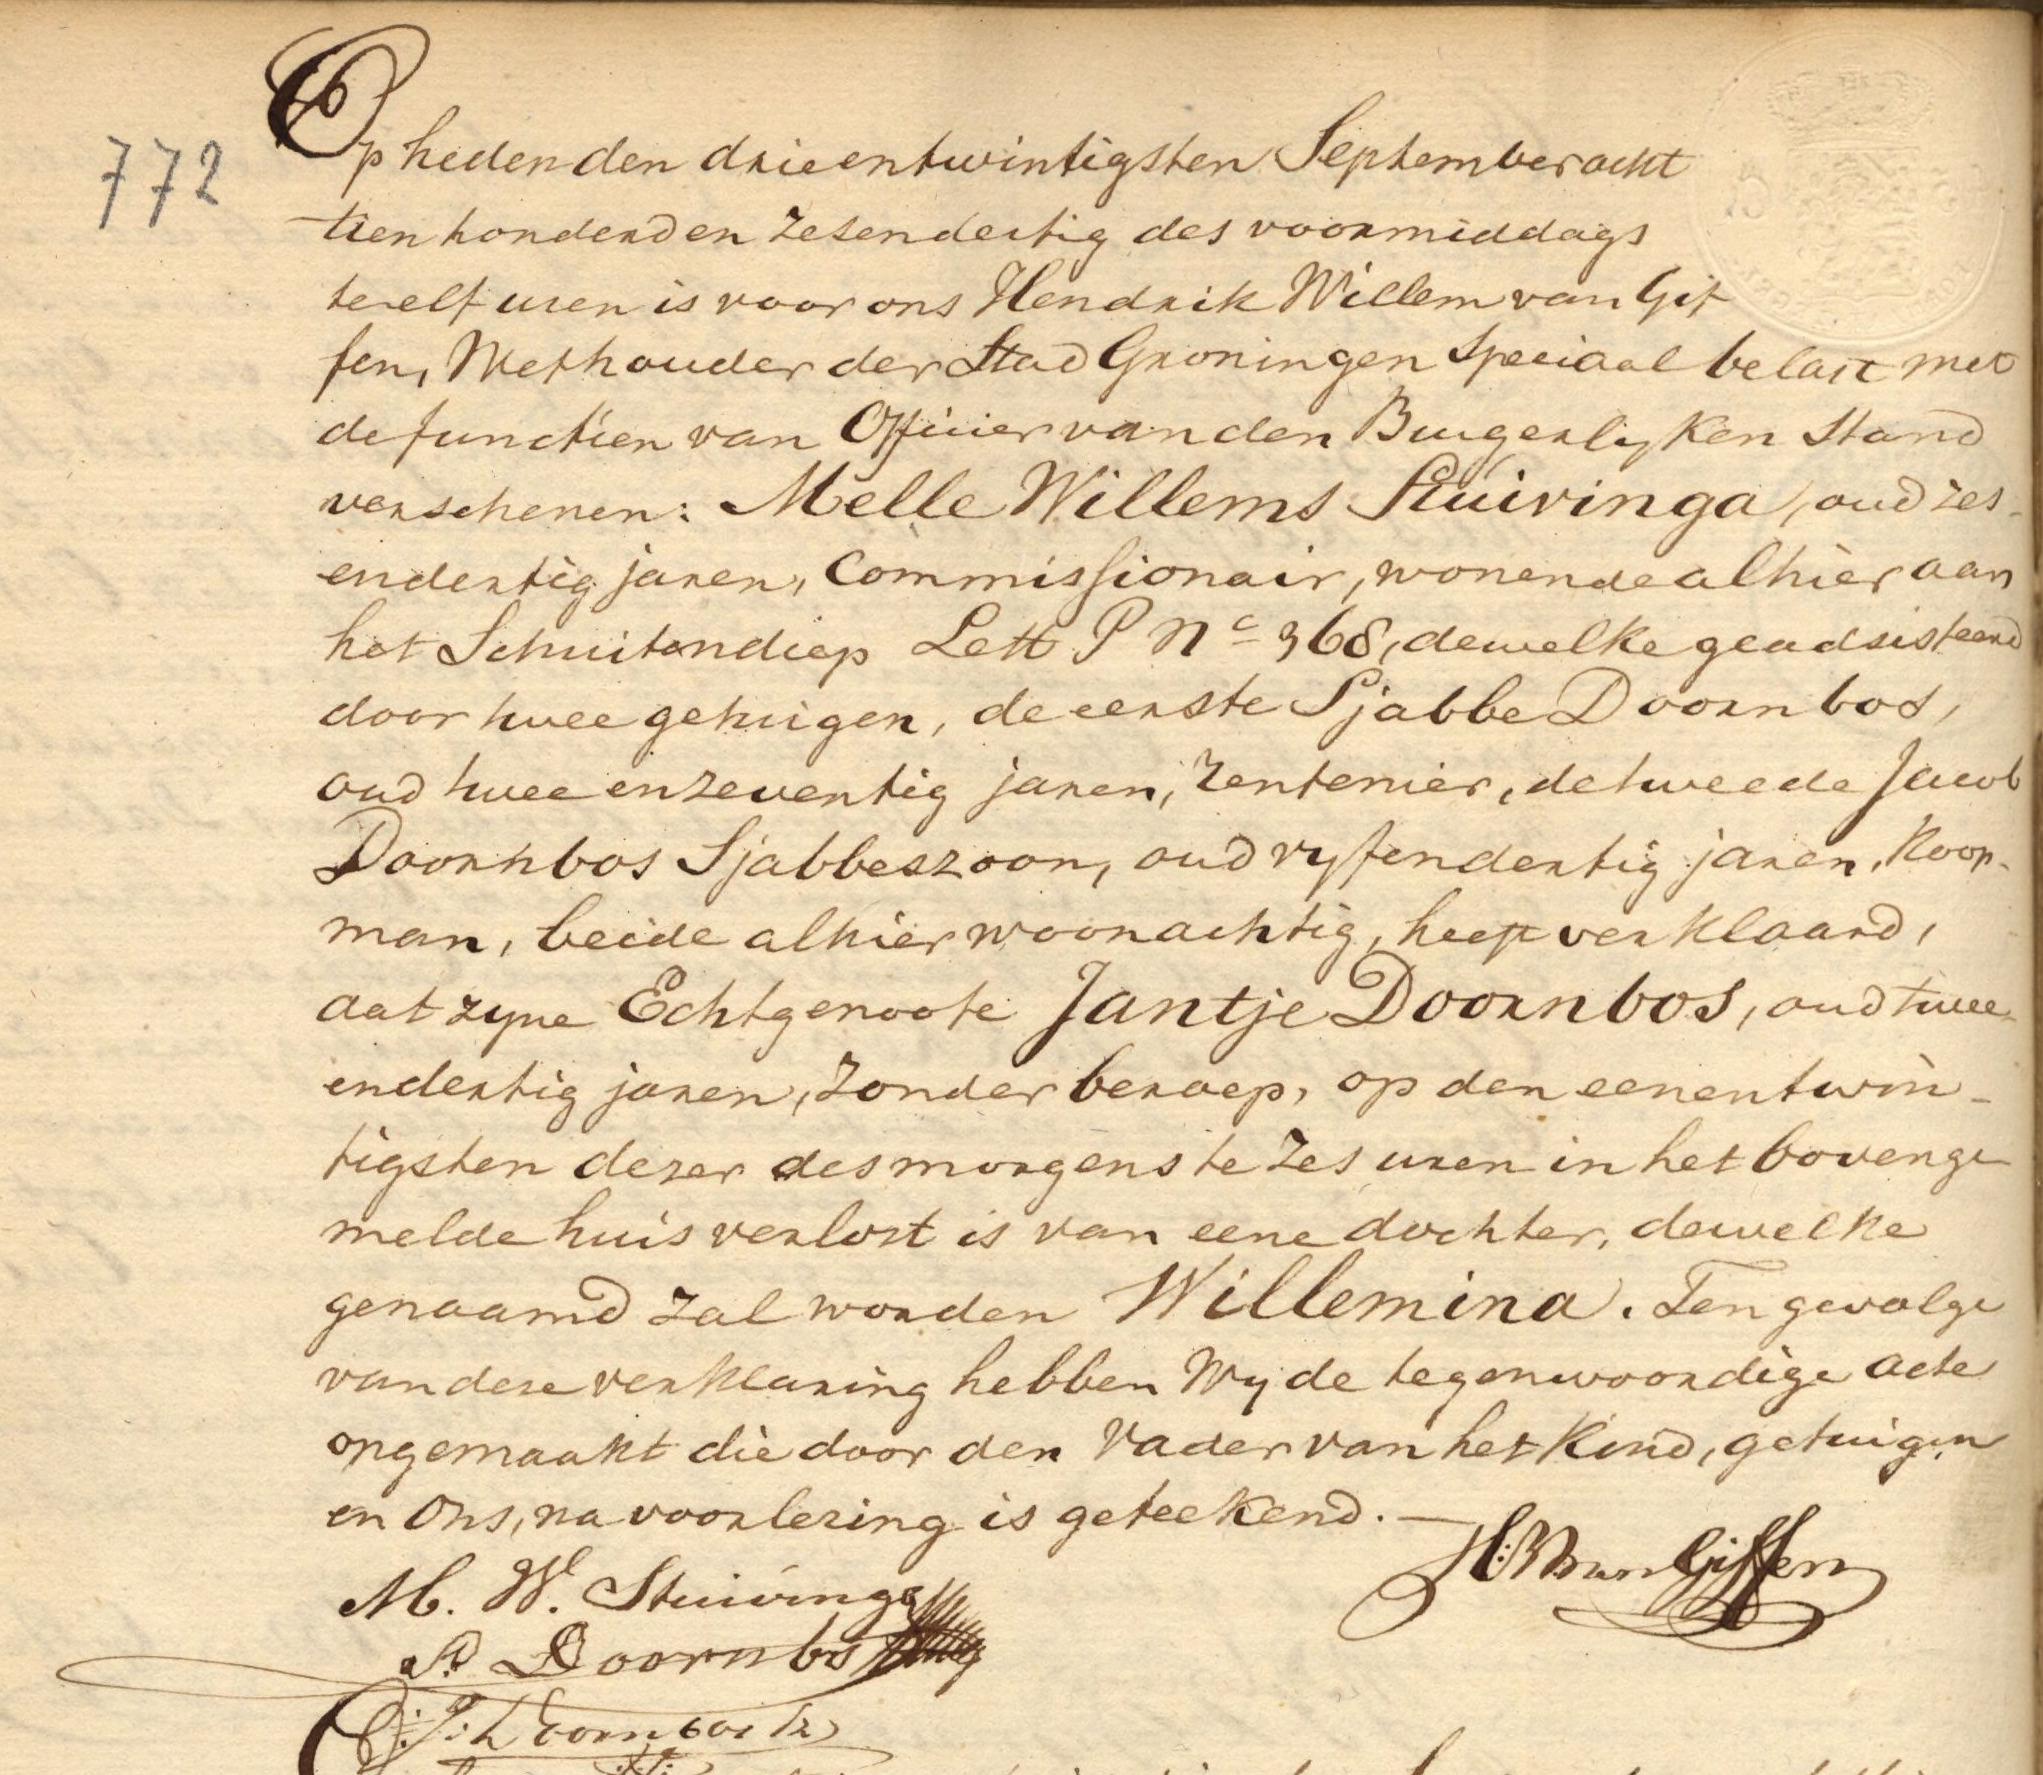 772
Op heden den drieentwintigsten September acht
tien honderd en zesendertig des voormiddags
te elf uren is voor ons Hendrik Willem van Gif
fen, Wethouder der Stad Groningen Speciaal belast met
de functien van Officier van den Burgerlyken Stand
verschenen: Melle Willems Stuivinga, oud zes-
endertig jaren, Commissionair, wonende alhier aan
het Schuitendiep Lett P No 368, dewelke geadsisteerd
door twee getuigen, de eerste Sjabbe Doornbos,
oud twee en zeventig jaren, rentenier, de tweede Jacob
Doornbos Sjabbeszoon, oud vyfendertig jaren, Koop-
man, beide alhier woonachtig, heeft verklaard,
dat zyne Echtgenoote Jantje Doornbos, oud twee-
endertig jaren, zonder beroep, op den eenentwin-
tigsten dezer des morgens te zes uren in het bovenge
melde huis verlost is van eene dochter, dewelke
genaamd zal worden Willemina. Ten gevolge
van deze verklaring hebben Wy de tegenwoordige acte
opgemaakt die door den Vader van het Kind, getuigen
en Ons, na voorlezing is geteekend. —
HW van Giffen
M. W. Stuivinga
S. Doornbos
J: Doornbos Sz